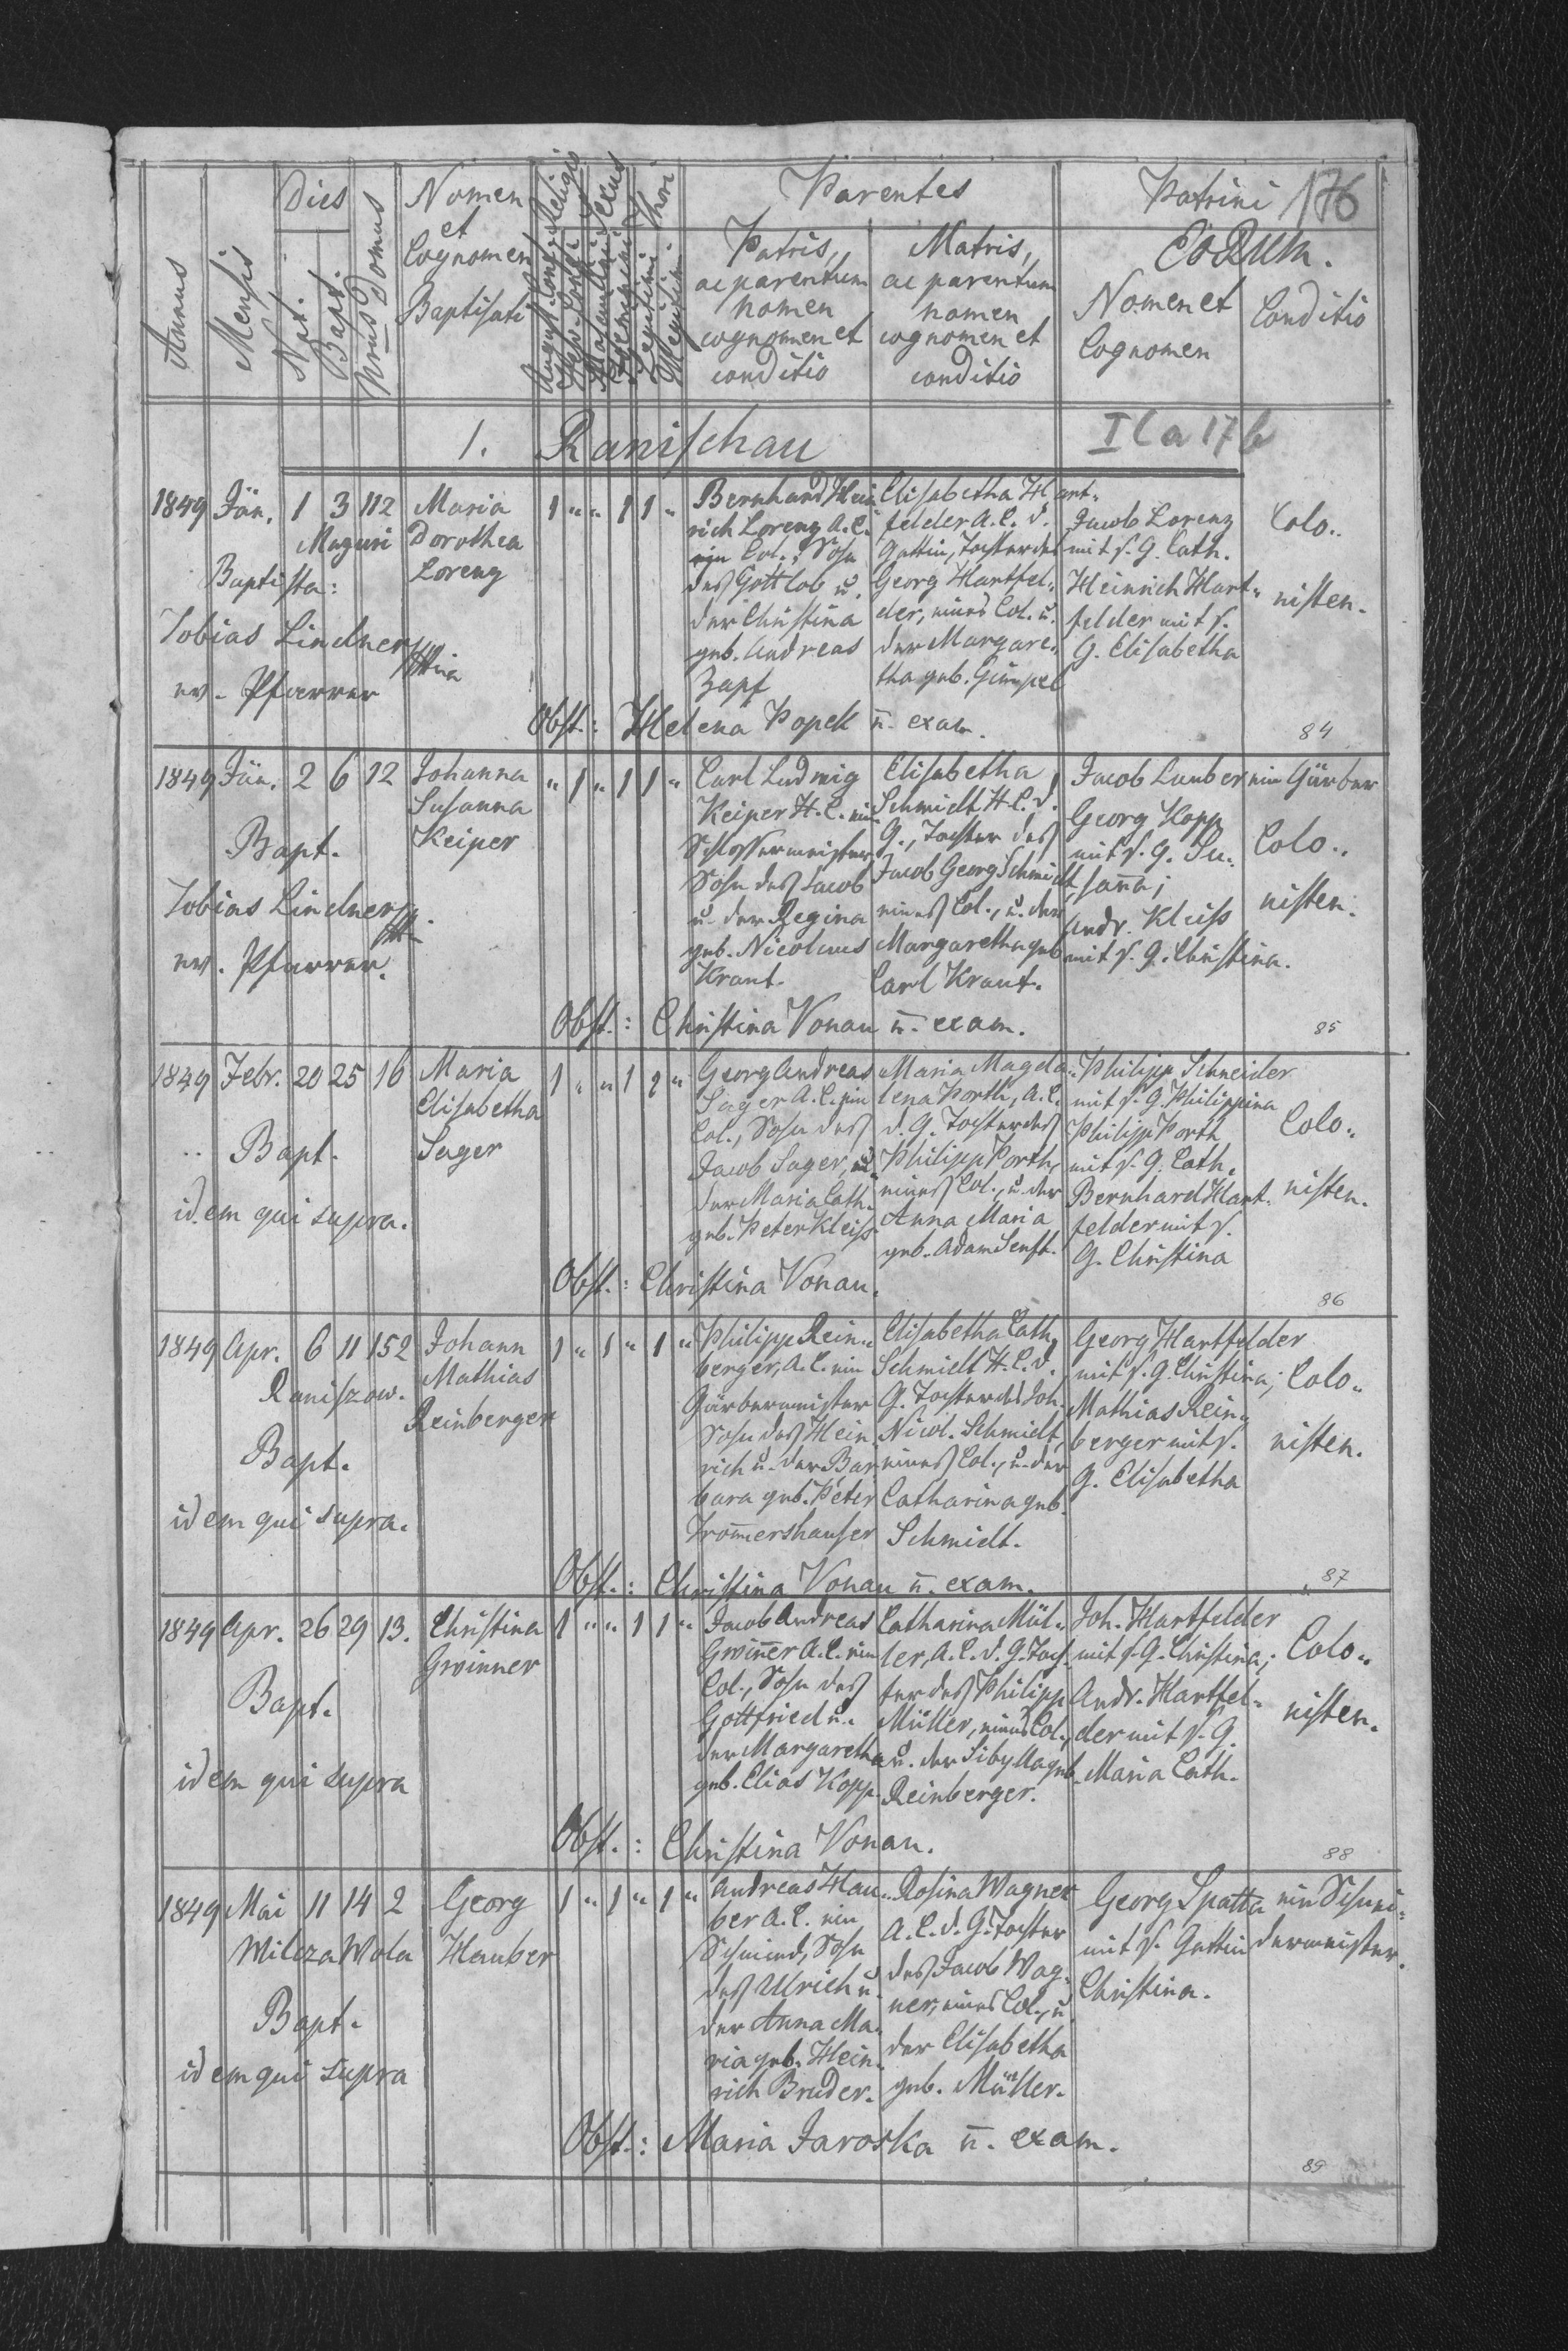 Annus
Mensis
Dies
Nat.
Bapt.
Nrus Domus
Nomen
et
Cognomen
Baptisati
Religio
August. Conf.
Helv. Conf.
Sexus
Masculini
Feminini
Thori
Legitimi
Illegitimi
Parentes
Patris,
ac parentum
nomen
cognomen et
conditio
Matris,
ac parentum
nomen
cognomen et
conditio
Patrini
176
Eorum.
Nomen et
Cognomen
Conditio
1. Ranischau
I C a 17 b
1849 Jän. 1 3 112
Mazuri
Baptista:
Tobias Lindner
ev. Pfarrer
Maria
Dorothea
Lorenz
1 " " 1 1 "
Bernhard Hein
rich Lorenz A.C.
ein Col., Sohn
deß Gottlob u.
der Christina
geb. Andreas
Zapf
Elisabetha Hart-
felder A.C. d.
Gattin, Tochter des
Georg Hartfel-
der, eines Col. u.
der Margare-
tha geb. Gümpel
Jacob Lorenz
mit s. G. Cath.
Heinrich Hart-
felder mit s.
G. Elisabetha
Colo-
nisten.
Obst.: Helena Popek n. exam.
84
1849 Jän. 2 6 12
Bapt.
Tobias Lindner
ev. Pfarrer.
Johanna
Susanna
Keiper
" 1 " 1 1 "
Carl Ludwig
Keiper H.C. ein
Schlossermeister
Sohn deß Jacob
u. der Regina
geb. Nicolaus
Kraut.
Elisabetha
Schmidt H.C. d.
G., Tochter deß
Jacob Georg Schmidt
eineß Col., u. der
Margaretha geb.
Carl Kraut.
Jacob Lauber ein Gärber
Georg Kopp
mit s. G. Su-
sanna;
Andr. Kleiss
mit s. G. Christina.
Colo-
nisten.
Obst.: Christina Vonau n. exam.
85
1849 Febr. 20 25 16
Bapt.
idem qui supra.
Maria
Elisabetha
Sager
1 " " 1 1 "
Georg Andreas
Sager A.C. ein
Col., Sohn deß
Jacob Sager, u.
der Maria Cath.
geb. Peter Kleiss
Maria Magda-
lena Porth, A.C.
d. G. Tochter deß
Philipp Porth,
eineß Col., u. der
Anna Maria
geb. Adam Senft.
Philipp Schneider
mit s. G. Philippina
Philipp Porth
mit s. G. Cath.
Bernhard Hart-
felder mit s.
G. Christina
Colo-
nisten.
Obst.: Christina Vonau.
86
1849 Apr. 6 11 152
Raniszow.
Bapt.
idem qui supra.
Johann
Mathias
Reinberger
1 " 1 " 1 "
Philipp Rein-
berger, A.C. ein
Gärbermeister
Sohn deß Hein-
rich u. der Bar-
bara geb. Peter
Trom̄ershauser
Elisabetha Cath.
Schmidt H.C. d.
G. Tochter des Joh.
Nicol. Schmidt,
eineß Col., u. der
Catharina geb.
Schmidt.
Georg Hartfelder
mit s. G. Christina;
Mathias Rein-
berger mit s.
G. Elisabetha
Colo-
nisten.
Obst.: Christina Vonau n. exam.
87
1849 Apr. 26 29 13.
Bapt.
idem qui supra
Christina
Gwinner
1 " " 1 1 "
Jacob Andreas
Gwin̄er A.C. ein
Col., Sohn deß
Gottfried u.
der Margaretha
geb. Elias Kopp.
Catharina Mül-
ler, A.C. d. G. Toch-
ter deß Philipp
Müller, eines Col.,
u. der Sibylla geb.
Reinberger.
Joh. Hartfelder
mit s. G. Christina;
Andr. Hartfel-
der mit s. G.
Maria Cath.
Colo-
nisten.
Obst.: Christina Vonau.
88
1849 Mai 11 14 2
Wilcza Wola
Bapt.
idem qui supra
Georg
Hauber
1 " 1 " 1 "
Andreas Hau-
ber A.C. ein
Schmied, Sohn
deß Ulrich u.
der Anna Ma-
ria geb. Hein-
rich Bruder.
Rosina Wagner
A.C. d. G. Tochter
deß Jacob Wag-
ner, eines Col., u.
der Elisabetha
geb. Müller.
Georg Spatta
mit s. Gattin
Christina.
ein Schnei-
dermeister.
Obst.: Maria Jaroska n. exam.
89